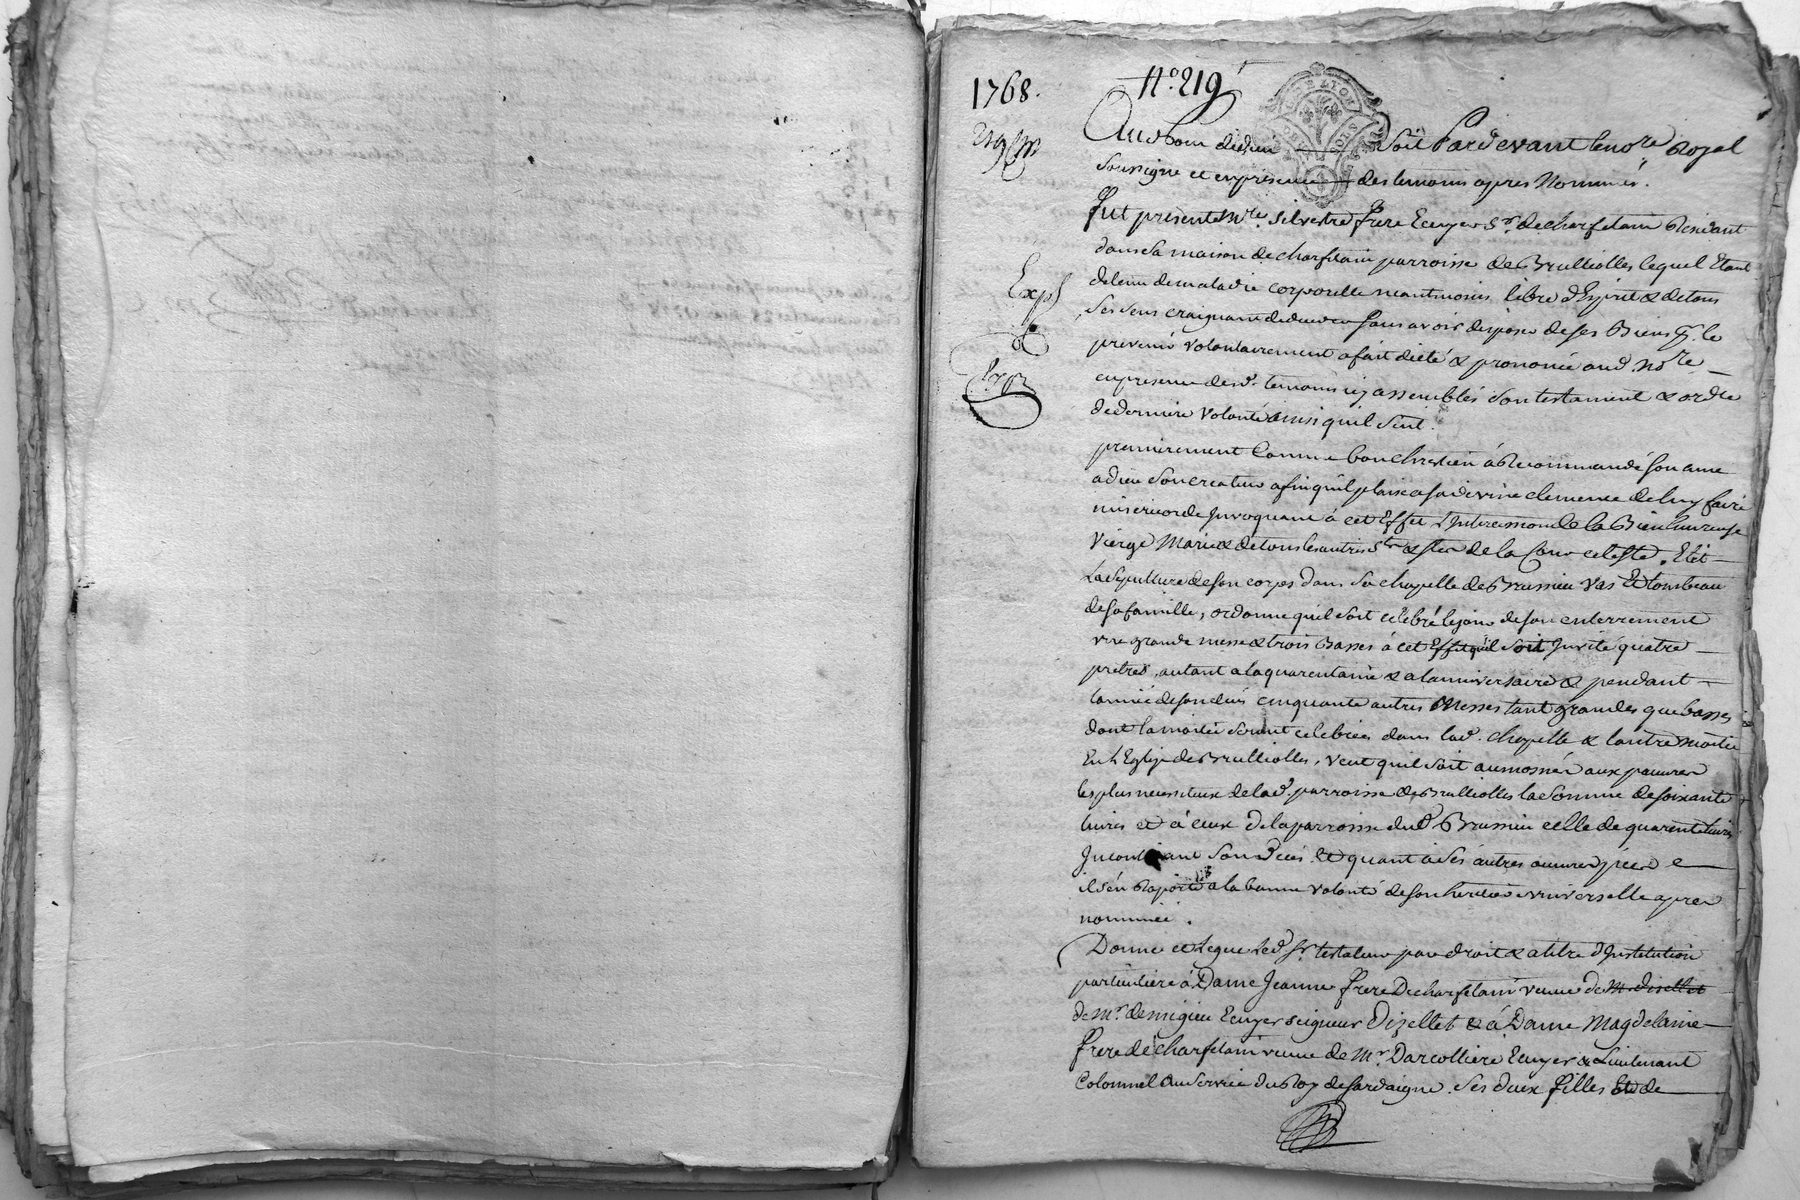 1768.
N.º 219
219
Au Nom de dieu Soit Pardevant le no.re Royal
Soussigné et en presence des temoins apres Nommés.
fut present M.re Silvestre frere Ecuyer S.r de charfetain Residant
dans sa maison de charfetain parroisse de Brullioles lequel Etant
detenu de maladie corporelle neantmoins libre d'Esprit & de tous
Ses sens craignant de deceder sans avoir disposé de ses Biens le
Exp.
prevenir volontairement a fait dicté & prononcé aud. no.re
&
en presence desd. temoins icy assemblés son testament & ordre
de derniere volonté ainsi quil suit.
premierement Comme bon chretien á Recommandé son ame
a dieu son createur afin quil plaise a sa divine clemence de luy faire
misericorde Invoquant á cet Effet L'Intercession de la Bienheureuse
Vierge Marie & de tous les autres S.ts & S.tes de la Cour celeste. Elit
La Sepulture de son corps dans sa chapelle de Brussieu Vas Et tombeau
de sa famille, ordonne quil soit célébré le jour de son enterrement
une grande messe & trois Basses á cet Effet quil soit Invité quatre
pretres, autant a la quarantaine & a lanniversaire & pendant
lannée de son decés cinquante autres Messes tant grandes que basses
dont la moitié seront celebrées dans lad. chapelle & lautre moitié
En L'Eglise de Brullioles, veut quil soit aumosné aux pauvres
les plus necessiteux de lad. parroisse de Brullioles la Somme de soixante
livres et á ceux de la parroisse dud. Brussieu celle de quarente livres
Incontinant Son Decés. Et quant á ses autres œuvres pies
il s'en Raporte a la bonne volonté de son heritiere universelle apres
nommée.
Donne et Legue led. S.r testateur par droit & a titre d'Institution
particuliere á Dame Jeanne frere De charfetain veuve de M. dizellet
de M.r de migieu Ecuyer seigneur Dizellet & á Dame Magdelaine
frere de charfetain veuve de M.r Darcolliere Ecuyer & Lieutenant
Colonnel au Service du Roy de Sardaigne. Ses deux filles Et de